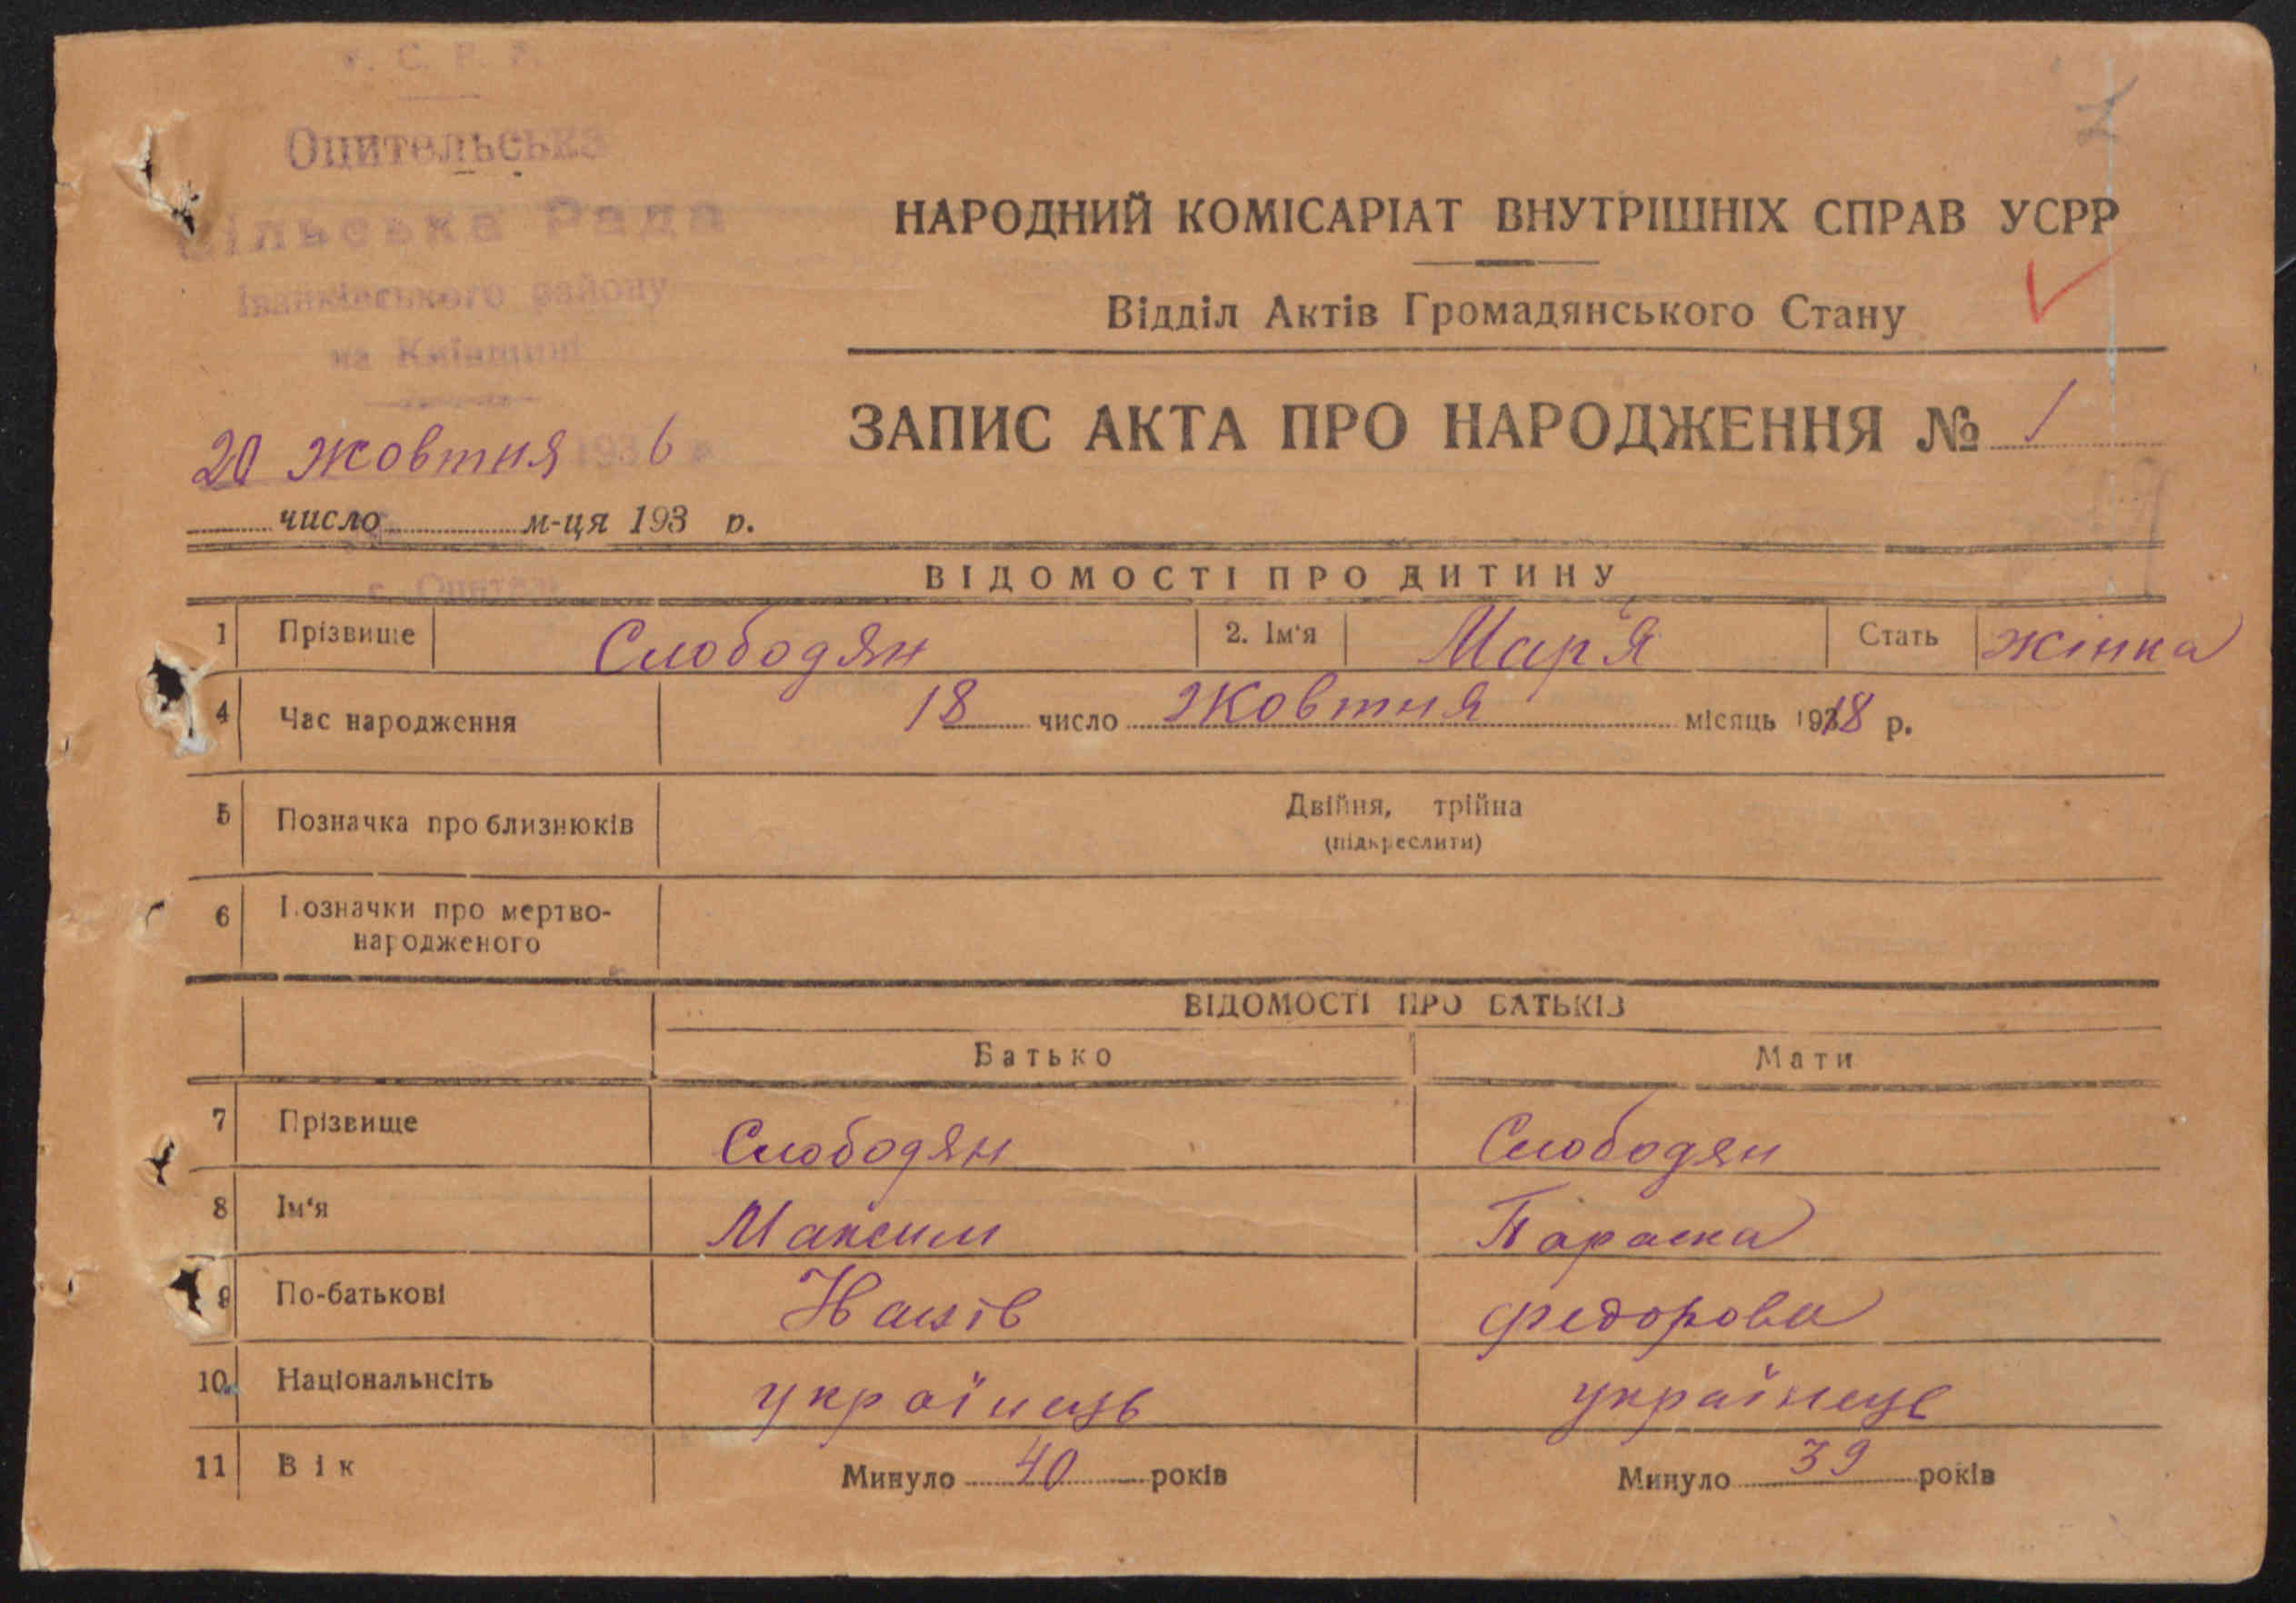 У. С. Р. Р.
Оцительська
Сільська Рада
Іванківського району
на Київщині
20 жовтня 1936 р.
число м-ця 193 р.
с. Оцитель
НАРОДНИЙ КОМІСАРІАТ ВНУТРІШНІХ СПРАВ УСРР
Відділ Актів Громадянського Стану
ЗАПИС АКТА ПРО НАРОДЖЕННЯ № 1
ВІДОМОСТІ ПРО ДИТИНУ
1 Прізвище Слободян 2. Ім'я Мар'я Стать жінка
4 Час народження 18 число Жовтня місяць 1918 р.
5 Позначка про близнюків Двійня, трійна
(підкреслити)
6 Позначки про мертво-
народженого
ВІДОМОСТІ ПРО БАТЬКІВ
Батько Мати
7 Прізвище Слободян Слободян
8 Ім'я Максим Параска
9 По-батькові Федорова
10 Національнсіть українець українець
11 Вік Минуло 40 років Минуло 39 років